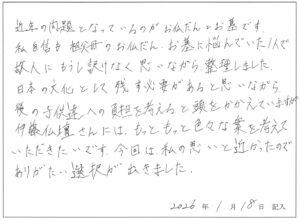 近年の問題となっているのがお仏だんとお墓です。
私自信も祖父母のお仏だん、お墓に悩んでいた1人で
故人にもうし訳けなく思いながら整理しました。
日本の文化として残す必要があると思いながら
後の子供達への負担を考えると頭をかかえていますが
伊藤仏壇さんには、もっともっと色々な案を考えて
いただきたいです。今回は、私の思いと近かったので
ありがたい選択が出きました。
2026年 1月 18日 記入